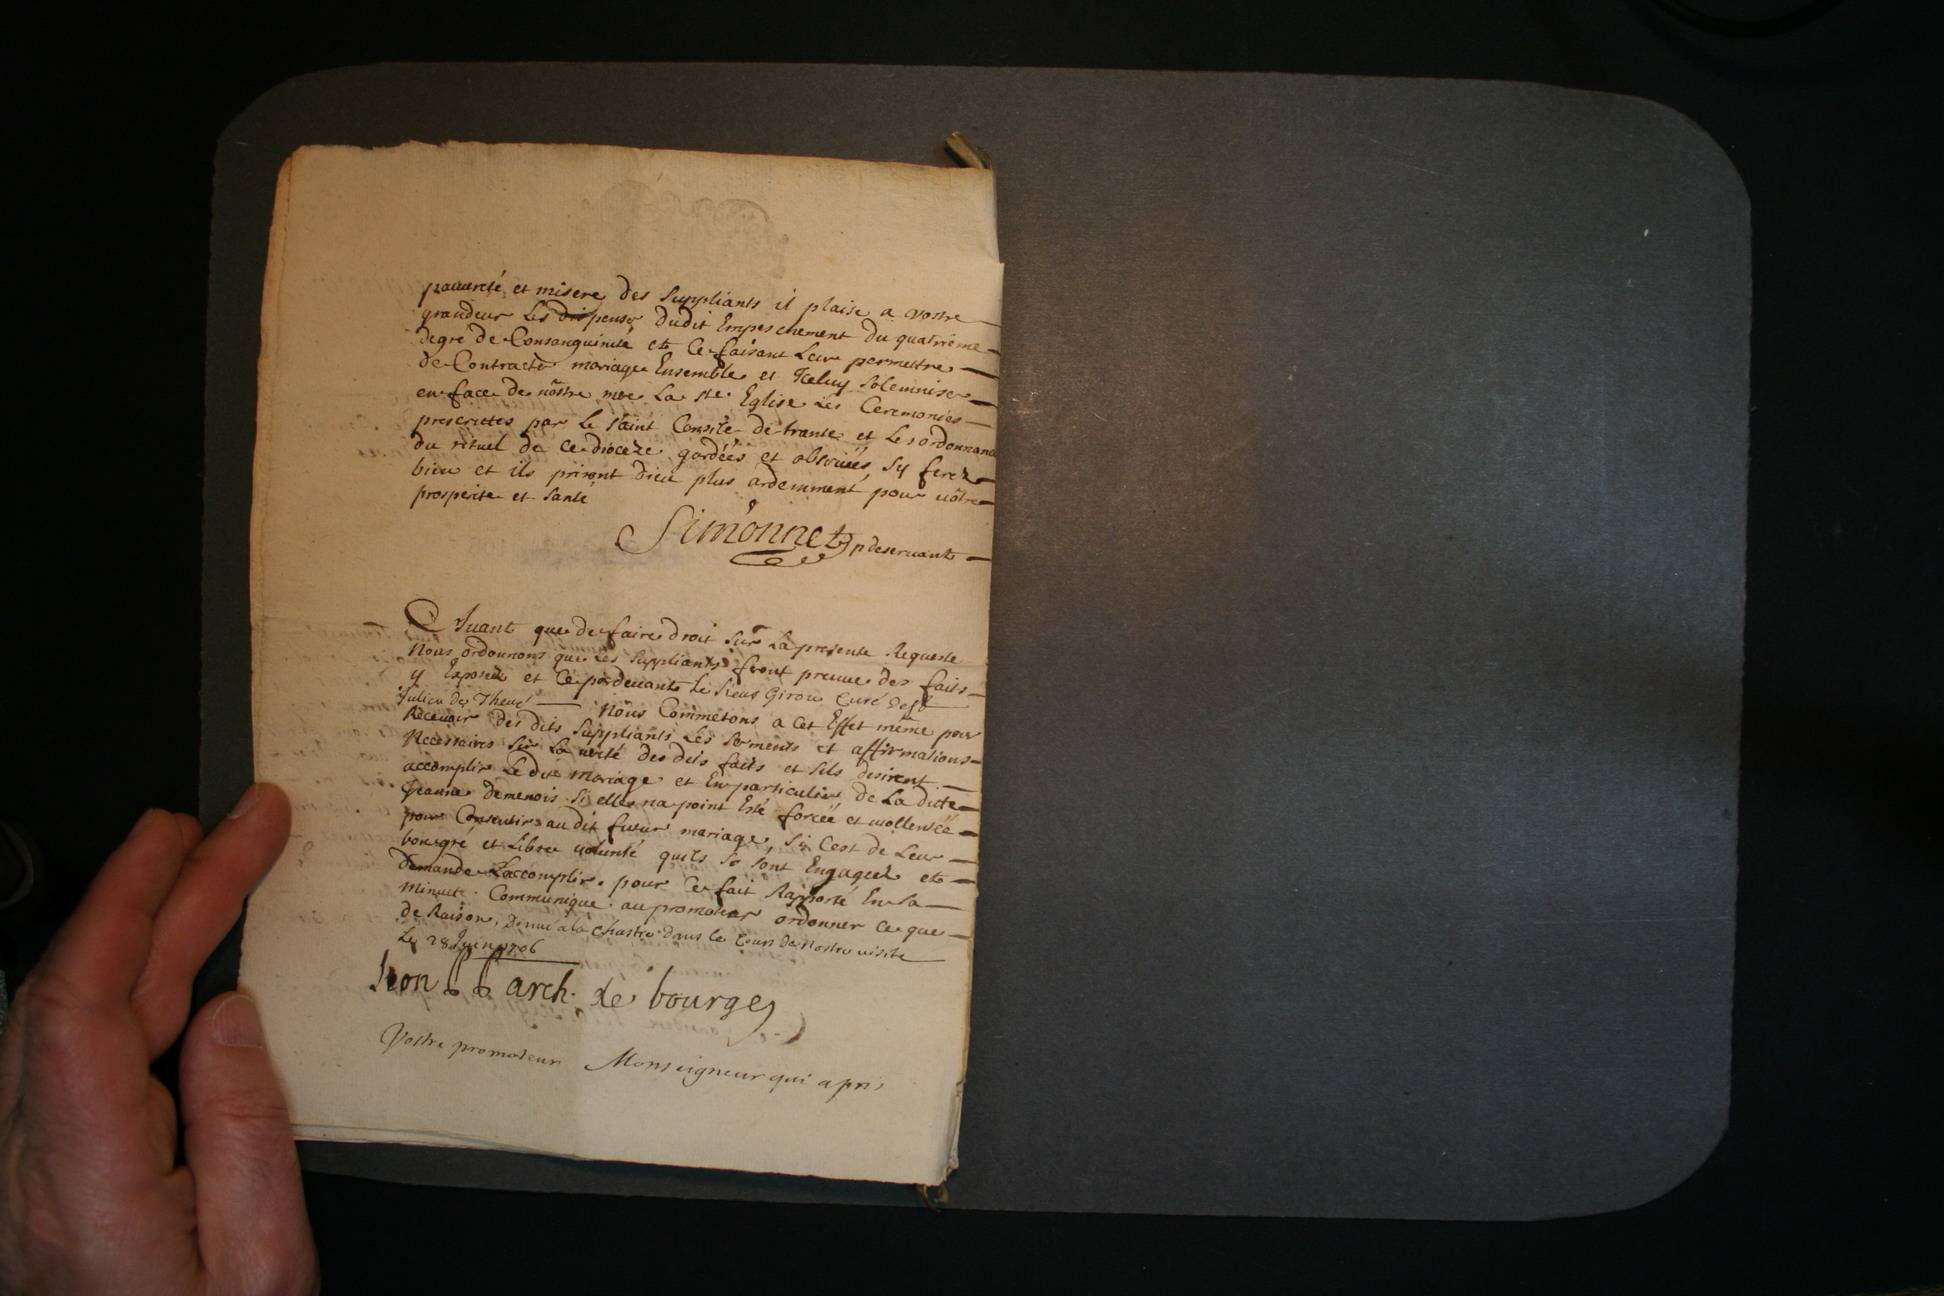 pauvreté et misere des suppliants il plaise a vostre
grandeur les dispenser dudit Empeschement du quatrieme
degré de Consanguinité et Ce faisant leur permettre
de Contracter mariage Ensemble et Iceluy solemniser
en face de nostre mere la ste Eglise les Ceremonies
prescrittes par le saint Consile de trante et les ordonnanc
du rituel de ce dioceze gardées et observées, sy ferez
bien et ils priront dieu plus ardemment pour vôtre
prosperite et santé
Simonnet p deservant
Avant que de faire droit sur la presente Requeste
Nous ordonnons que les suppliants front preuve des faits
y Exposez et Ce pardevant le sieur Girou Curé de st
Julien de Thevet Nous Commetons a cet Effet même pour
Recevoir des dits suppliants les serments et affirmations
Necessaires sur la verité des dits faits et sils desirent
accomplir le dit mariage et En particulier de La ditte
Jeanne demenois si elle na point Esté forcée et viollentée
pour Consentir au dit futur mariage, si Cest de leur
bon gré et libre volonté quils se sont Engagez et
demande Laccomplir. pour Ce fait Raporté En la
minute. Communiqué au promoteur ordonner ce que
de Raison, Donné a la Chastre dans le Cours de nostre visite
Le 28 Juin 1706
Leon PP arch. de bourges
Vostre promoteur Monseigneur qui a pris